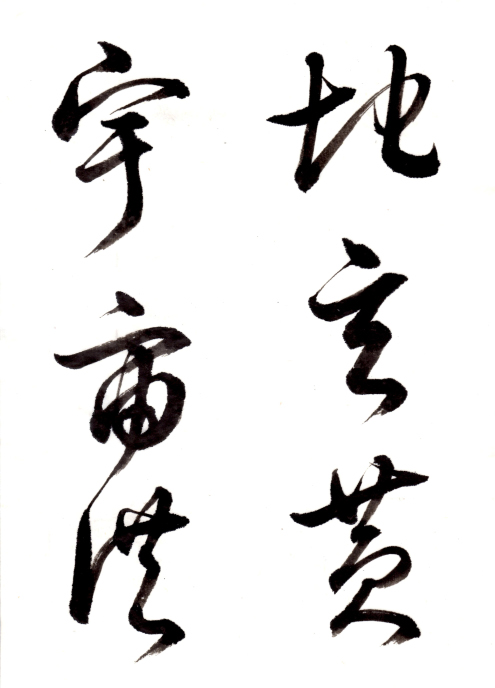 地玄黄
宇宙洪